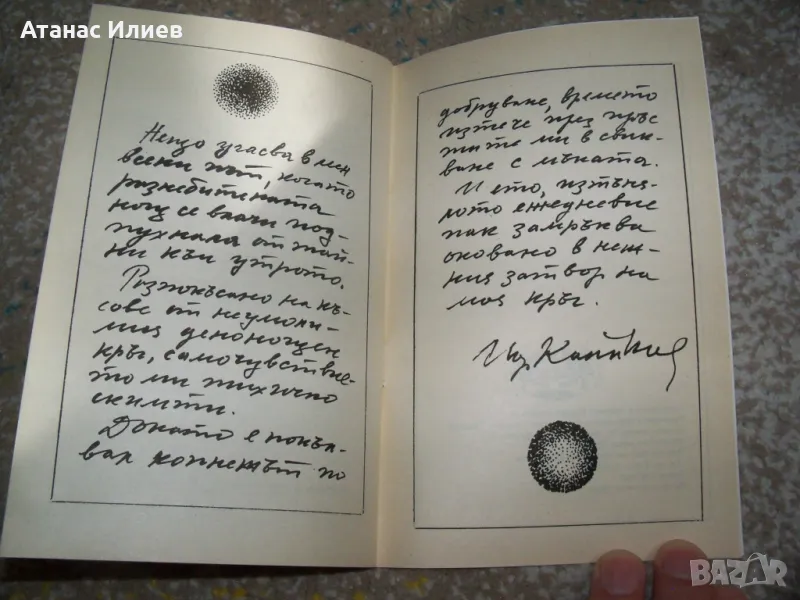 Атанас Илиев
Нещо угасва в мен
всеки път, когато
разнебитената
нощ се влачи под-
пухнала от тай-
ни към утрото.
Разпокъсано на къ-
сове от неумоли-
мия денонощен
кръг, самочувствие-
то ми тихично
скимти.
Докато е покъл-
вал копнежът по
добруване, времето
изтече през пръс
тите ми в свик-
ване с мъката.
И ето, изтъня-
лото ежедневие
пак замръква
оковано в неж-
ния затвор на
моя кръг.
BAZAR